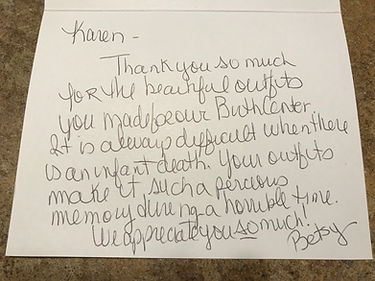 Karen -
Thank you so much
for the beautiful outfits
you made for our Birth Center.
It is always difficult when there
is an infant death. Your outfits
make it such a percious
memory during a horrible time.
We appreciate you so much!
Betsy